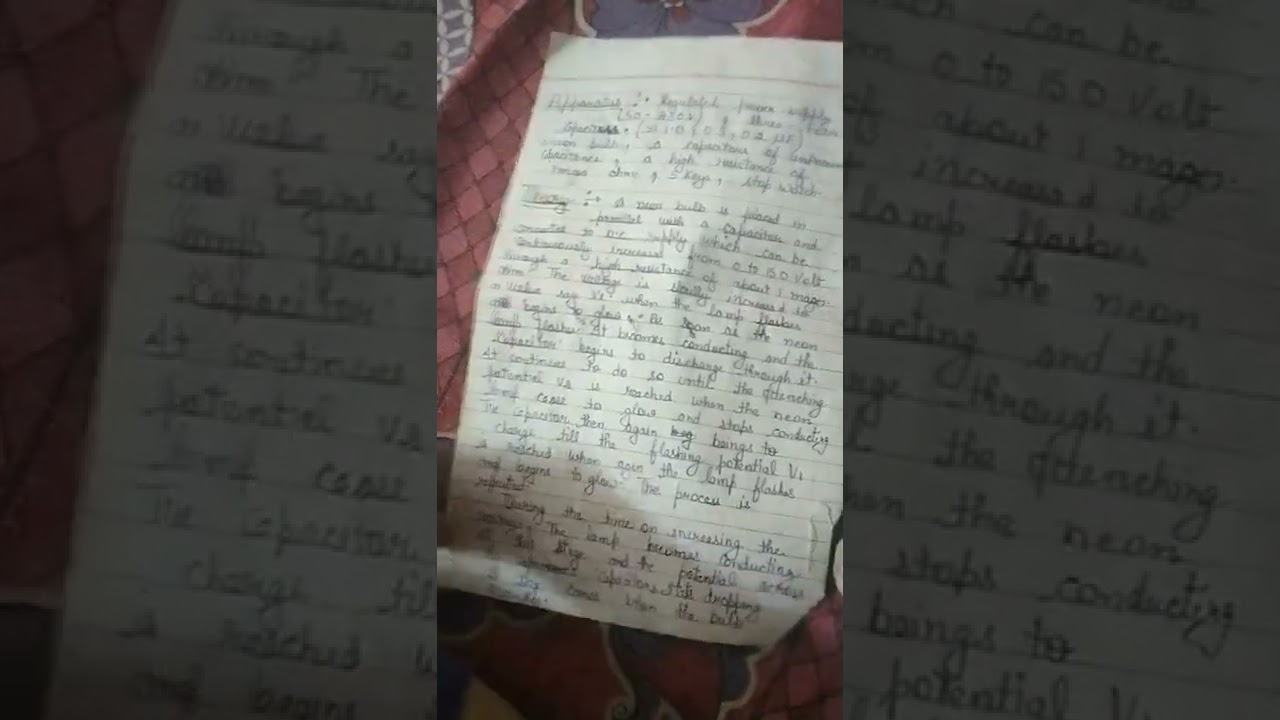 Apparatus :- Regulated power supply
(50 - 250V), three
capacitors (0.1, 0.3, 0.2 µF)
neon bulb, a capacitors of unknown
a high resistance of
ohm, 5 keys, stop watch.
Theory :- A neon bulb is placed in
parallel with a capacitor and
to D.C supply which can be
continuously increased from 0 to 150 Volt
through a high resistance of about 1 mago-
ohm. The voltage is slowly increased to
a value say V1 when the lamp flashes
begins to glow. As soon as the neon
lamb flashes It becomes conducting and the
Capacitor begins to discharge through it.
It continues to do so until the Qdenching
potential V2 is reached when the neon
lamp cease to glow and stops conducting
The Capacitor then again beings to
charge till the flashing potential V1
is reached when agin the lamp flashes
and begins to glow. The process is
repeated.
During the time on increasing the
voltage, The lamp becomes conducting
at this stage and the potential across
capacitors start dropping
comes when the bulb